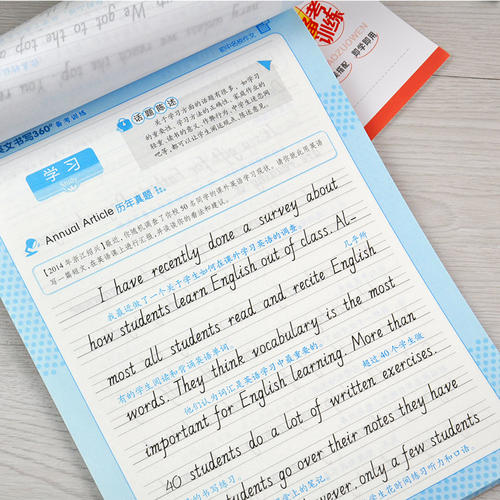 训练
AOZUOWEN
搭配 即学即用
got to the top
reach the top. You
初中名校作文
英文书写360° 备考训练
话题陈述
关于学习方面的话题有很多，如学习
的重要性、学习方法的正确性、家庭作业的
轻重、读书的意义、作弊行为、中学生迷恋网
吧等，都可以让学生阐述观点，陈述意见。
学习
Study
Annual Article 历年真题
【2014年浙江绍兴】最近，你随机调查了你校50名同学的课外英语学习现状，请你就此用英语
写一篇短文，在英语课上进行汇报，并谈谈你的看法和建议。
I have recently done a survey about
我最近做了一个关于学生如何在课外学习英语的调查。
how students learn English out of class. Al-
几乎所
most all students read and recite English
有的学生阅读和背诵英语单词。
words. They think vocabulary is the most
他们认为词汇是英语学习中最重要的。
important for English learning. More than
超过40个学生做
40 students do a lot of written exercises.
的书写练习
students go over their notes they have
学上的笔记。
owever, only a few students
生花时间练习听力和口语。